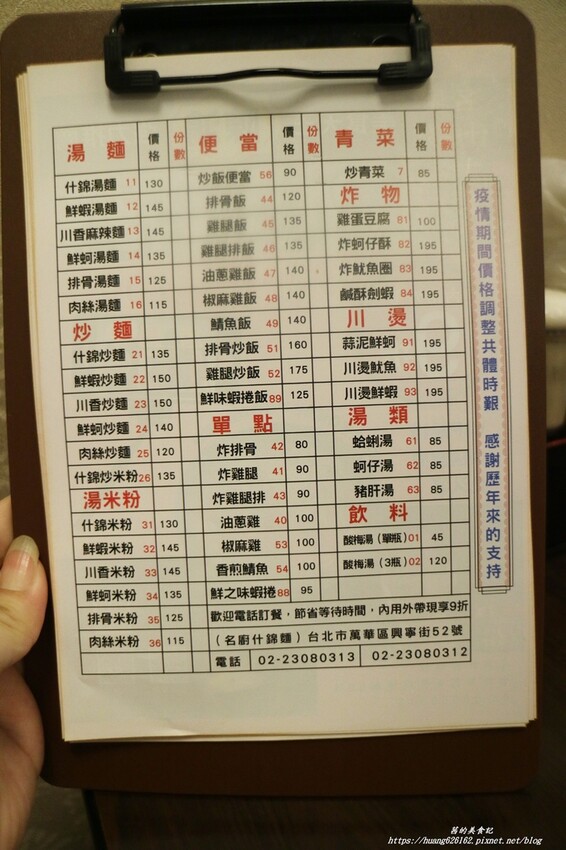 湯麵 價格 份數
什錦湯麵 11 130
鮮蝦湯麵 12 145
川香麻辣麵 13 145
鮮蚵湯麵 14 135
排骨湯麵 15 125
肉絲湯麵 16 115
炒麵
什錦炒麵 21 135
鮮蝦炒麵 22 150
川香炒麵 23 150
鮮蚵炒麵 24 140
肉絲炒麵 25 120
什錦炒米粉 26 135
湯米粉
什錦米粉 31 130
鮮蝦米粉 32 145
川香米粉 33 145
鮮蚵米粉 34 135
排骨米粉 35 125
肉絲米粉 36 115
便當 價格 份數
炒飯便當 56 90
排骨飯 44 120
雞腿飯 45 135
雞腿排飯 46 135
油蔥雞飯 47 140
椒麻雞飯 48 140
鯖魚飯 49 140
排骨炒飯 51 160
雞腿炒飯 52 175
鮮味蝦捲飯 89 125
單點
炸排骨 42 80
炸雞腿 41 90
炸雞腿排 43 90
油蔥雞 40 100
椒麻雞 53 100
香煎鯖魚 54 100
鮮之味蝦捲 88 95
青菜 價格 份數
炒青菜 7 85
炸物
雞蛋豆腐 81 100
炸蚵仔酥 82 195
炸魷魚圈 83 195
鹹酥劍蝦 84 195
川燙
蒜泥鮮蚵 91 195
川燙魷魚 92 195
川燙鮮蝦 93 195
湯類
蛤蜊湯 61 85
蚵仔湯 62 85
豬肝湯 63 85
飲料
酸梅湯（單瓶）01 45
酸梅湯（3瓶）02 120
歡迎電話訂餐，節省等待時間，內用外帶現享9折
（名廚什錦麵）台北市萬華區興寧街52號
電話 02-23080313 02-23080312
疫情期間價格調整共體時艱 感謝歷年來的支持
茜的美食記
https://huang626162.pixnet.net/blog